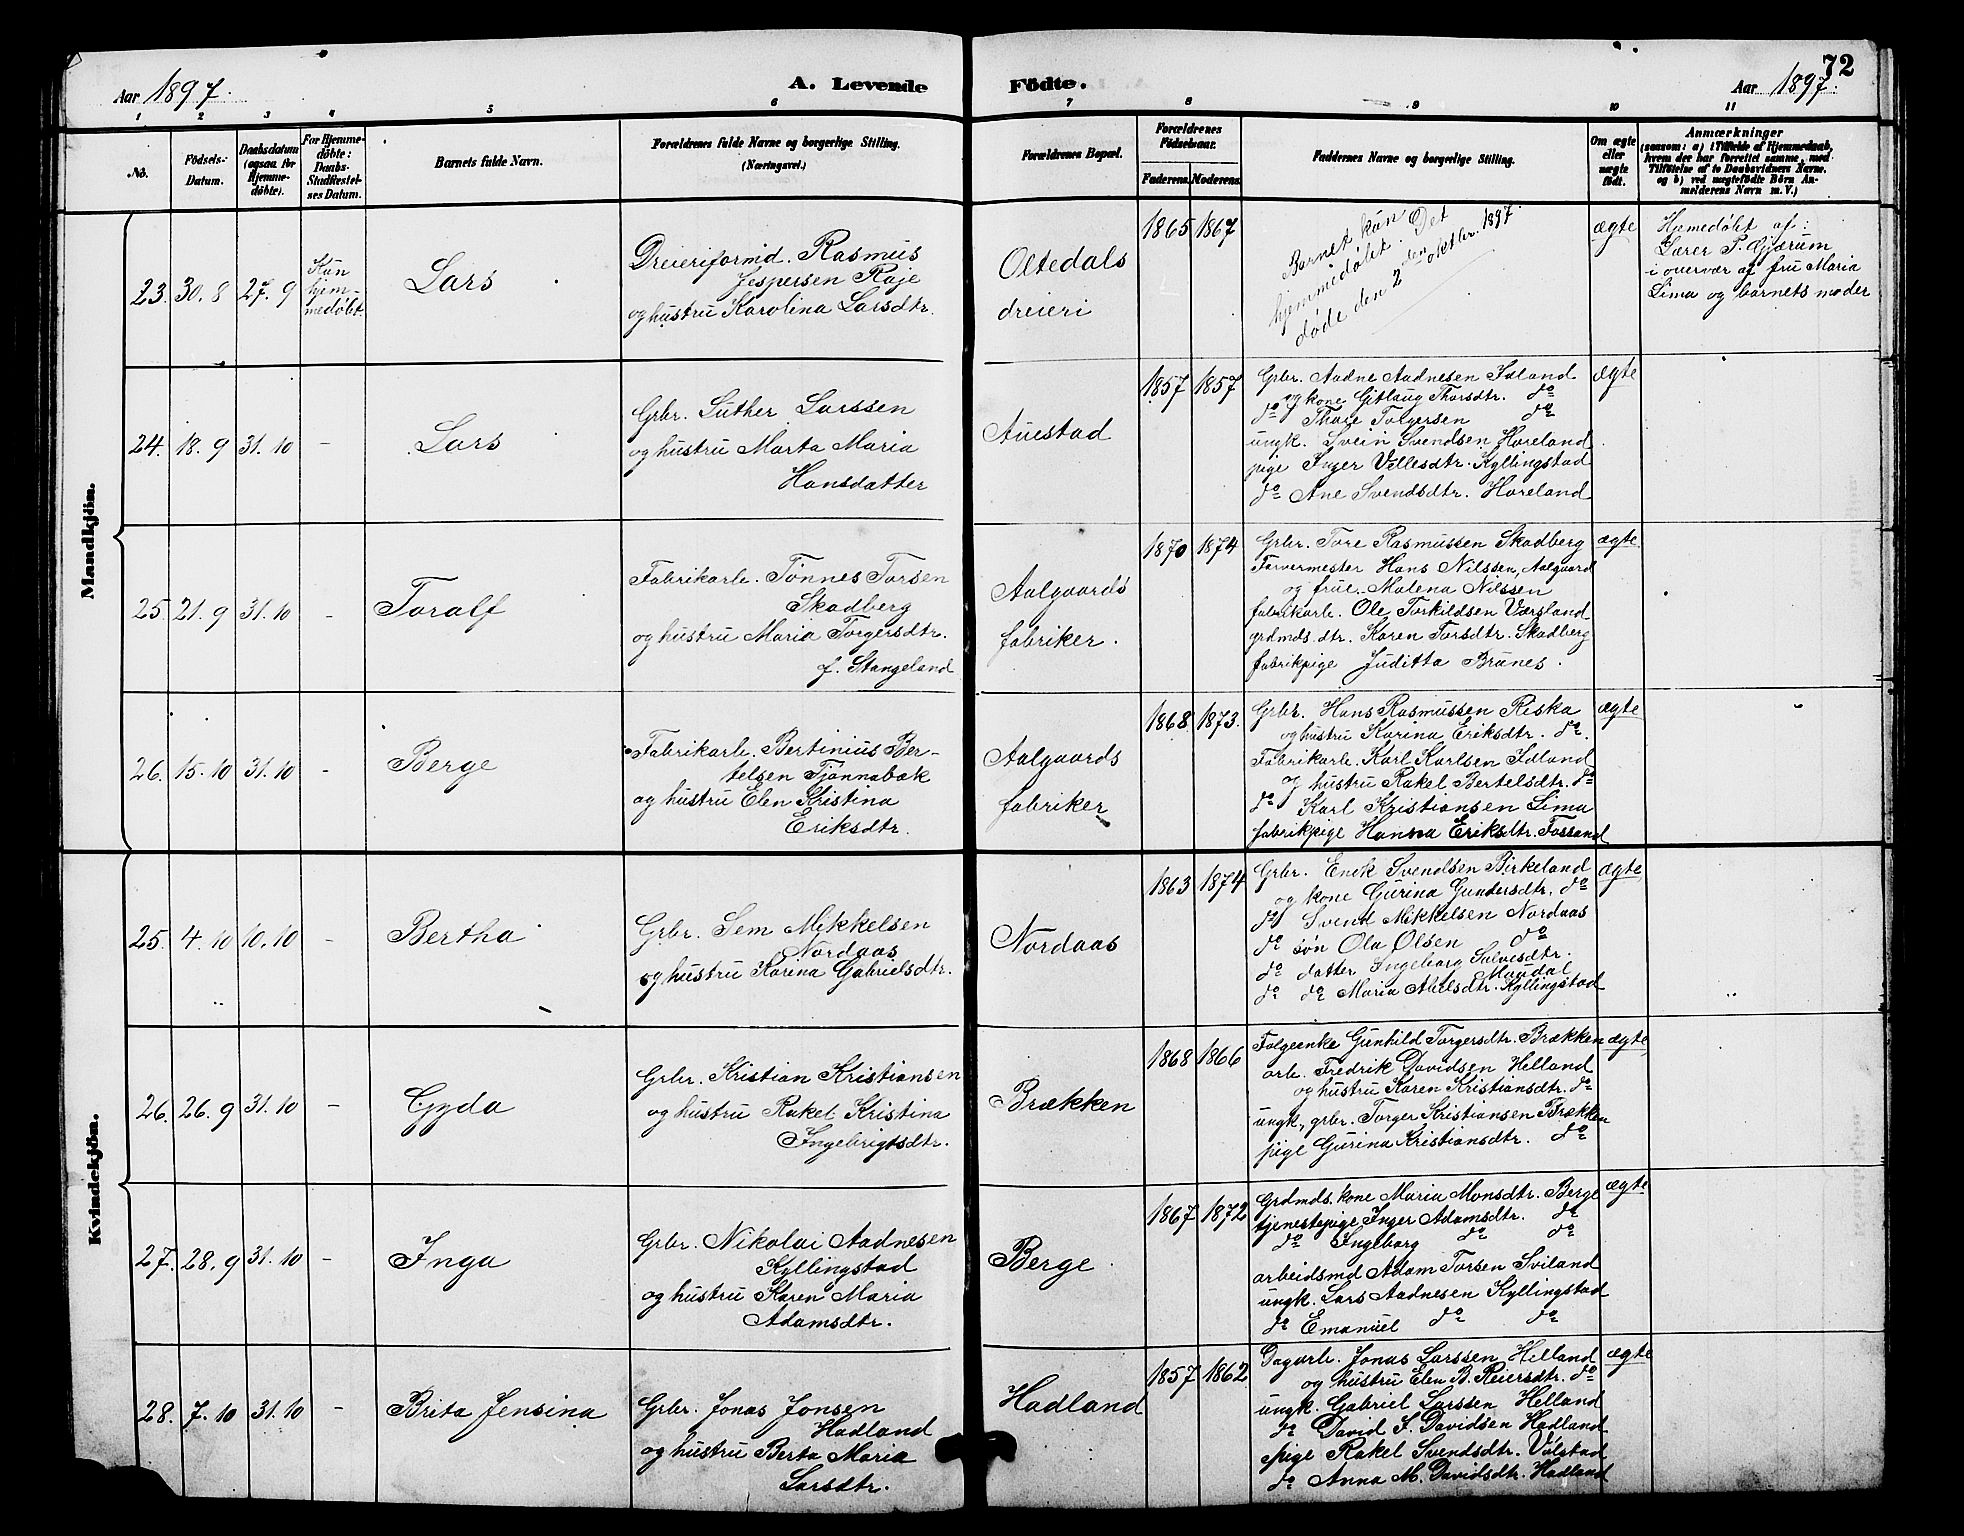 72
Aar 1897.
A. Levende Födte.
Aar 1897.
1 2 3 4 5 6 7 8 9 10 11
No.
Födsels-
Datum.
Daabsdatum
(ogsaa for
Hjemme-
döbte).
For Hjemme-
döbte:
Daabs-
Stadfæstel-
ses Datum.
Barnets fulde Navn.
Forældrenes fulde Navne og borgerlige Stilling.
(Næringsvei.)
Forældrenes Bopæl.
Forældrenes
Födselsaar.
Faderens. Moderens.
Faddernes Navne og borgerlige Stilling.
Om ægte
eller
uægte
födt.
Anmærkninger
(saasom: a) i Tilfælde af Hjemmedaab,
hvem der har forrettet samme, med
Tilföielse af to Daabsvidners Navne.
og b) ved uægtefödte Börn An-
melderens Navn m. V.)
Mandkjön.
23. 30. 8 27. 9
Kun
hjem-
medøbt.
Lars
Dreieriformd. Rasmus
Jespersen Raje
og hustru Karolina Larsdtr.
Oltedals
dreieri
1865 1867
Barnet kun
hjemmedøbt. Det
døde den 2den oktbr. 1897.
ægte
Hjemedøbt af:
Lærer P. Gjærum
i overvær af fru Maria
Lima og barnets moder
24. 18. 9 31. 10 -
Lars
Grbr. Luther Larssen
og hustru Marta Maria
Hansdatter
Auestad
1857 1857
Grbr. Aadne Aadnesen Idland
og kone Gitlaug Thorsdtr. do
do Thore Tolgersen do
ungk. Svein Svendsen Hareland
pige Inger Vellesdtr. Kyllingstad
do Ane Svendsdtr. Hareland
ægte
25. 21. 9 31. 10 -
Toralf
Fabrikarb. Tønnes Torsen
Skadberg
og hustru Maria Torgersdtr.
f. Stangeland
Aalgaards
fabriker.
1870 1874
Grbr. Tore Rasmussen Skadberg
Farvermester Hans Nilssen, Aalgaard
og frue Malena Nilssen
fabrikarb. Ole Torkildsen Værsland
grdmds. dtr. Karen Torsdtr. Skadberg
fabrikpige Juditta Brunes.
ægte
26. 15. 10 31. 10 -
Berge
Fabrikarb. Bertinius Ber-
telsen Tjønnabæk
og hustru Elen Kristina
Eriksdtr.
Aalgaards
fabriker
1868 1873.
Grbr. Hans Rasmussen Riska
og hustru Karina Eriksdtr. do.
Fabrikarb. Karl Karlsen Idland
og hustru Rakel Bertelsdtr. do
do Karl Kristiansen Lima
fabrikpige Hanna Eriksdtr. Fossand
ægte
Kvindekjön.
25. 4. 10 10. 10 -
Bertha
Grbr. Sem Mikkelsen
Nordaas
og hustru Karina Gabrielsdtr.
Nordaas
1863 1874
Grbr. Enok Svendsen Birkeland
og kone Gurina Gundersdtr. do
do Svend Mikkelsen Nordaas
do søn Ola Olsen do
do datter Ingeborg Salvesdtr.
Maudal
do do Maria Abelsdtr. Kyllingstad
ægte
26. 26. 9 31. 10 -
Gyda
Grbr. Kristian Kristiansen
og hustru Rakel Kristina
Ingebrigtsdtr.
Brækken
1868 1866
Folgeenke Gunhild Torgersdtr. Brækken
arb. Fredrik Davidsen Helland
og hustru Karen Kristiansdtr. do
ungk., grbr. Torger Kristiansen Brækken
pige Gurina Kristiansdtr. do
ægte
27. 28. 9 31. 10 -
Inga
Grbr. Nikolai Aadnesen
Kyllingstad
og hustru Karen Maria
Adamsdtr.
Berge
1867 1872
Grdmds. kone Maria Monsdtr. Berge
tjenestepige Inger Adamsdtr. do
do Ingeborg do do
arbeidsmd Adam Torsen Sviland
ungk. Lars Aadnesen Kyllingstad
do Emanuel do do
ægte
28. 7. 10 31. 10 -
Brita Jensina
Grbr. Jonas Jonsen
Hadland
og hustru Berta Maria
Larsdtr.
Hadland
1857 1862
Dagarb. Jonas Larssen Helland
og hustru Elen B. Reiersdtr. do
ungk. Gabriel Larssen Helland
do David S. Davidsen Hadland
pige Rakel Svendsdtr. Valstad
do Anna M. Davidsdtr. Hadland
ægte